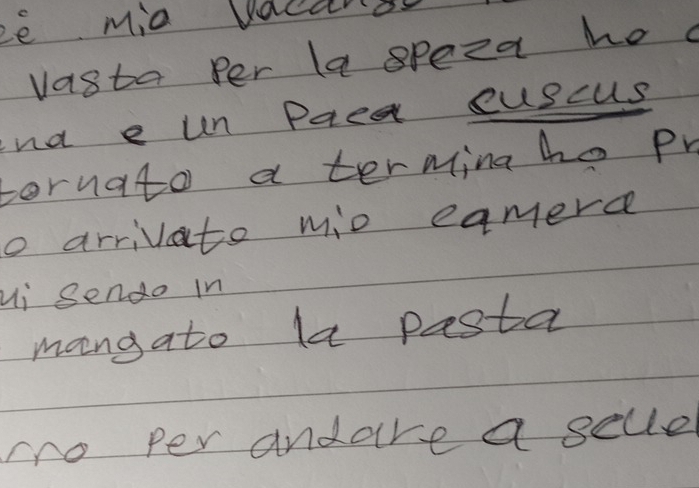 mio vacanse
vasta per la speza ho
e un paca cuscus
tornato a termina ho pr
o arrivato mio camera
ui sendo in
mangato la pasta
rno per andare a scuel